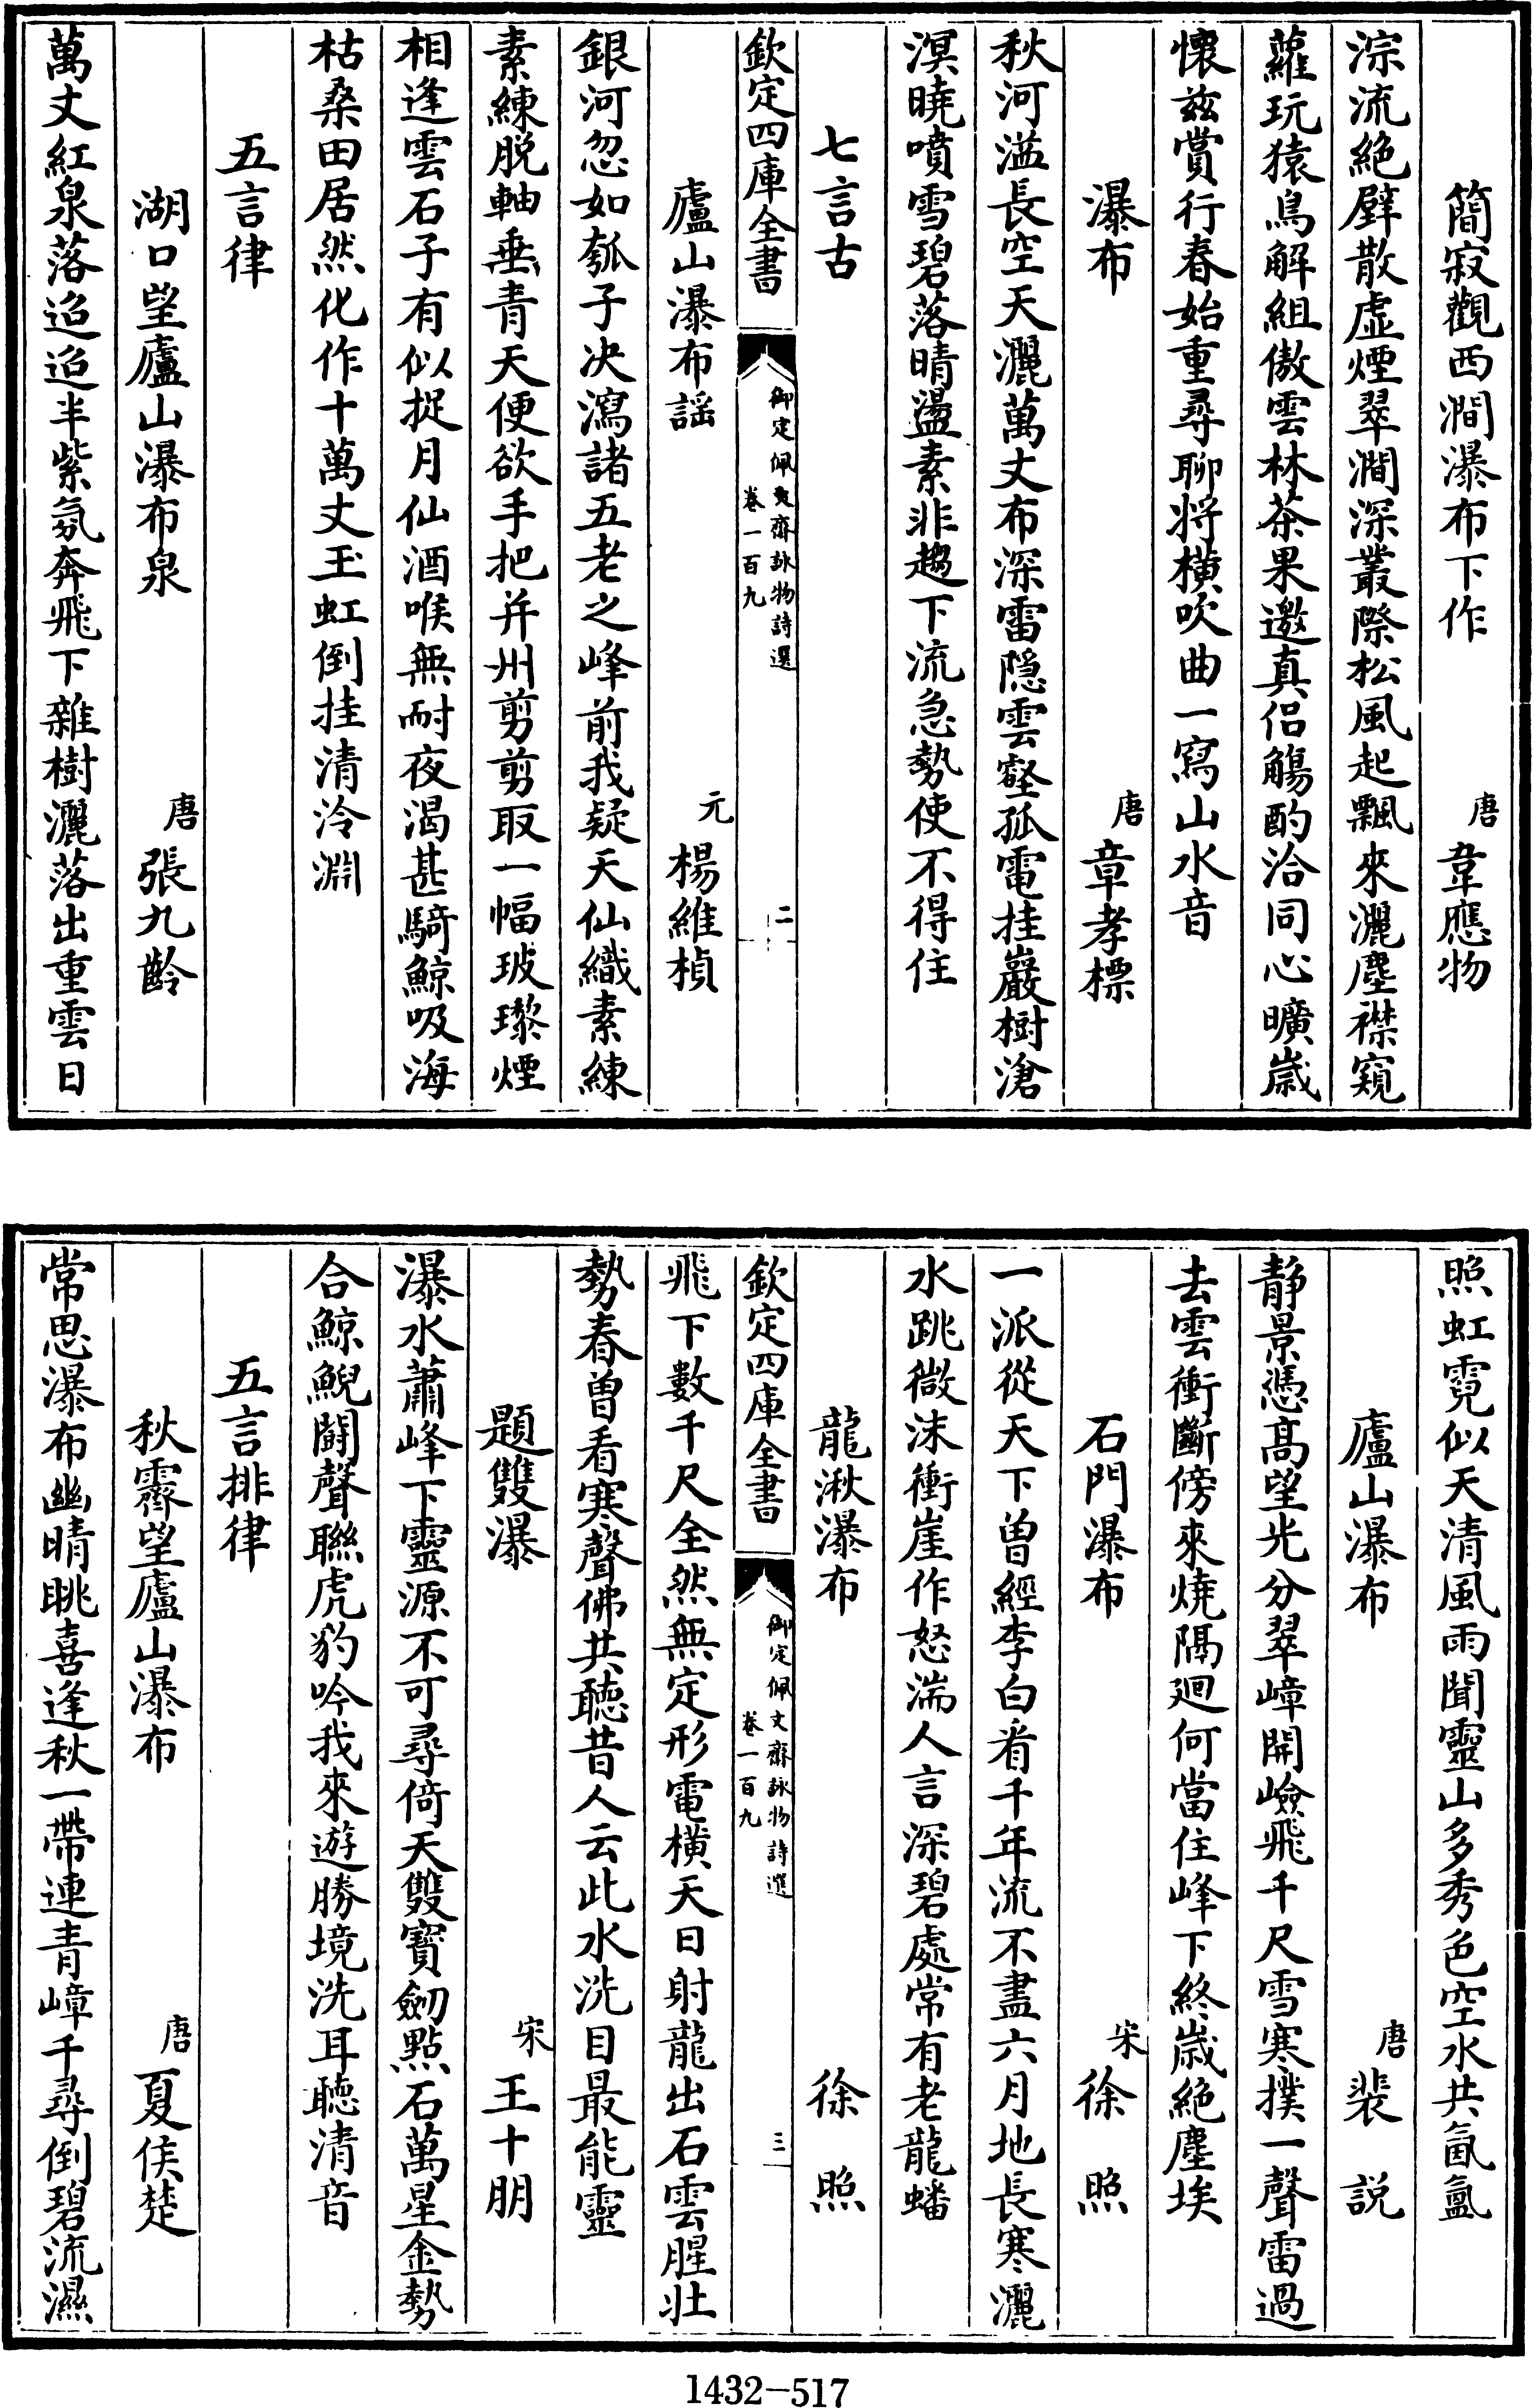 簡寂觀西澗瀑布下作　唐　韋應物
淙流絶壁散虛煙翠澗深叢際松風起飄來灑塵襟窺
蘿玩猿鳥解組傲雲林茶果邀真侣觴酌洽同心曠歲
懷兹賞行春始重尋聊將横吹曲一寫山水音
瀑布　唐　章孝標
秋河溢長空天灑萬丈布深雷隱雲壑孤電挂巖樹滄
溟曉噴雪碧落晴盪素非趨下流急勢使不得住
七言古
欽定四庫全書　御定佩文齋詠物詩選　卷一百九　二
廬山瀑布謡　元　楊維楨
銀河忽如瓠子决瀉諸五老之峰前我疑天仙織素練
素練脱軸垂青天便欲手把并州剪剪取一幅玻瓈煙
相逢雲石子有似捉月仙酒喉無耐夜渴甚騎鯨吸海
枯桑田居然化作十萬丈玉虹倒挂清泠淵
五言律
湖口望廬山瀑布泉　唐　張九齡
萬丈紅泉落迢迢半紫氛奔飛下雜樹灑落出重雲日
照虹霓似天清風雨聞靈山多秀色空水共氤氲
廬山瀑布　唐　裴説
静景憑高望光分翠嶂開嶮飛千尺雪寒撲一聲雷過
去雲衝斷傍來燒隔迴何當住峰下終歲絶塵埃
石門瀑布　宋　徐照
一派從天下曽經李白看千年流不盡六月地長寒灑
水跳微沫衝崖作怒湍人言深碧處常有老龍蟠
龍湫瀑布　徐照
欽定四庫全書　御定佩文齋詠物詩選　卷一百九　三
飛下數千尺全然無定形電横天日射龍出石雲腥壯
勢春曽看寒聲佛共聽昔人云此水洗目最能靈
題雙瀑　宋　王十朋
瀑水蕭峰下靈源不可尋倚天雙寳劒點石萬星金勢
合鯨鯢鬭聲聯虎豹吟我來遊勝境洗耳聽清音
五言排律
秋霽望廬山瀑布　唐　夏侯楚
常思瀑布幽晴眺喜逢秋一帶連青嶂千尋倒碧流濕
1432-517